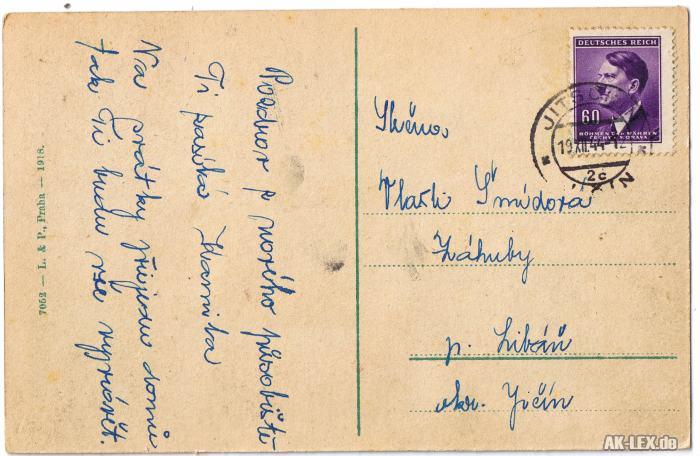 Pozdrav z nového působiště
Ti posílá Jarmila
Na svátky přijedu domů
tak Ti budu vše vyprávět.
7052 — L. & P., Praha — 1918.
DEUTSCHES REICH
60
BÖHMEN UND MÄHREN
ČECHY A MORAVA
JITSCHIN
19.XII.44-12
2c
JIČÍN
Slečna
Vlasti Šmídová
Záhuby
p. Libáň
okr. Jičín
AK-LEX.de